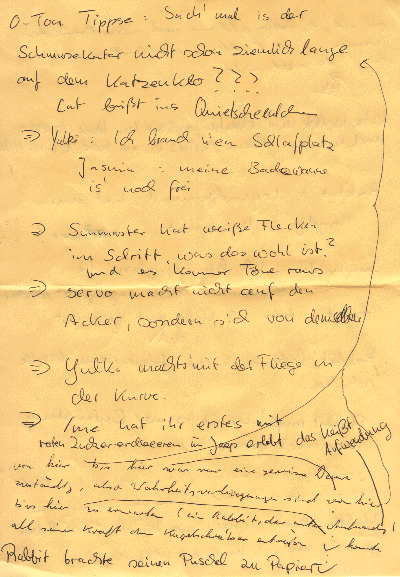 O-Ton Tippse: Sach' mal is der
Schmusekater nicht schon ziemlich lange
auf dem Katzenklo???
Cat beißt ins Quietscheentchen
⇒ Yulki: Ich brauch n'en Schlafplatz
Jasmin: meine Badewanne
is' noch frei
⇒ hat weiße Flecken
im Schritt, was das wohl ist?
und es kommen Töne raus
⇒ Servo macht nicht auf den
Acker, sondern sich von demselben
⇒ Yulki macht's mit der Fliege in
der Kurve.
⇒ hat ihr erstes mit
roten Zuckererdbeeren im Jeep erlebt das heißt Aufwendung
von hier bis hier war nur eine gewisse Dame
zuständig, also sind von hier
bis hier zu erwarten (ein Rabbit, der
all seiner Kraft den Kugelschreiber entreißen konnte
Rabbit brachte seinen Puschel zu Papier